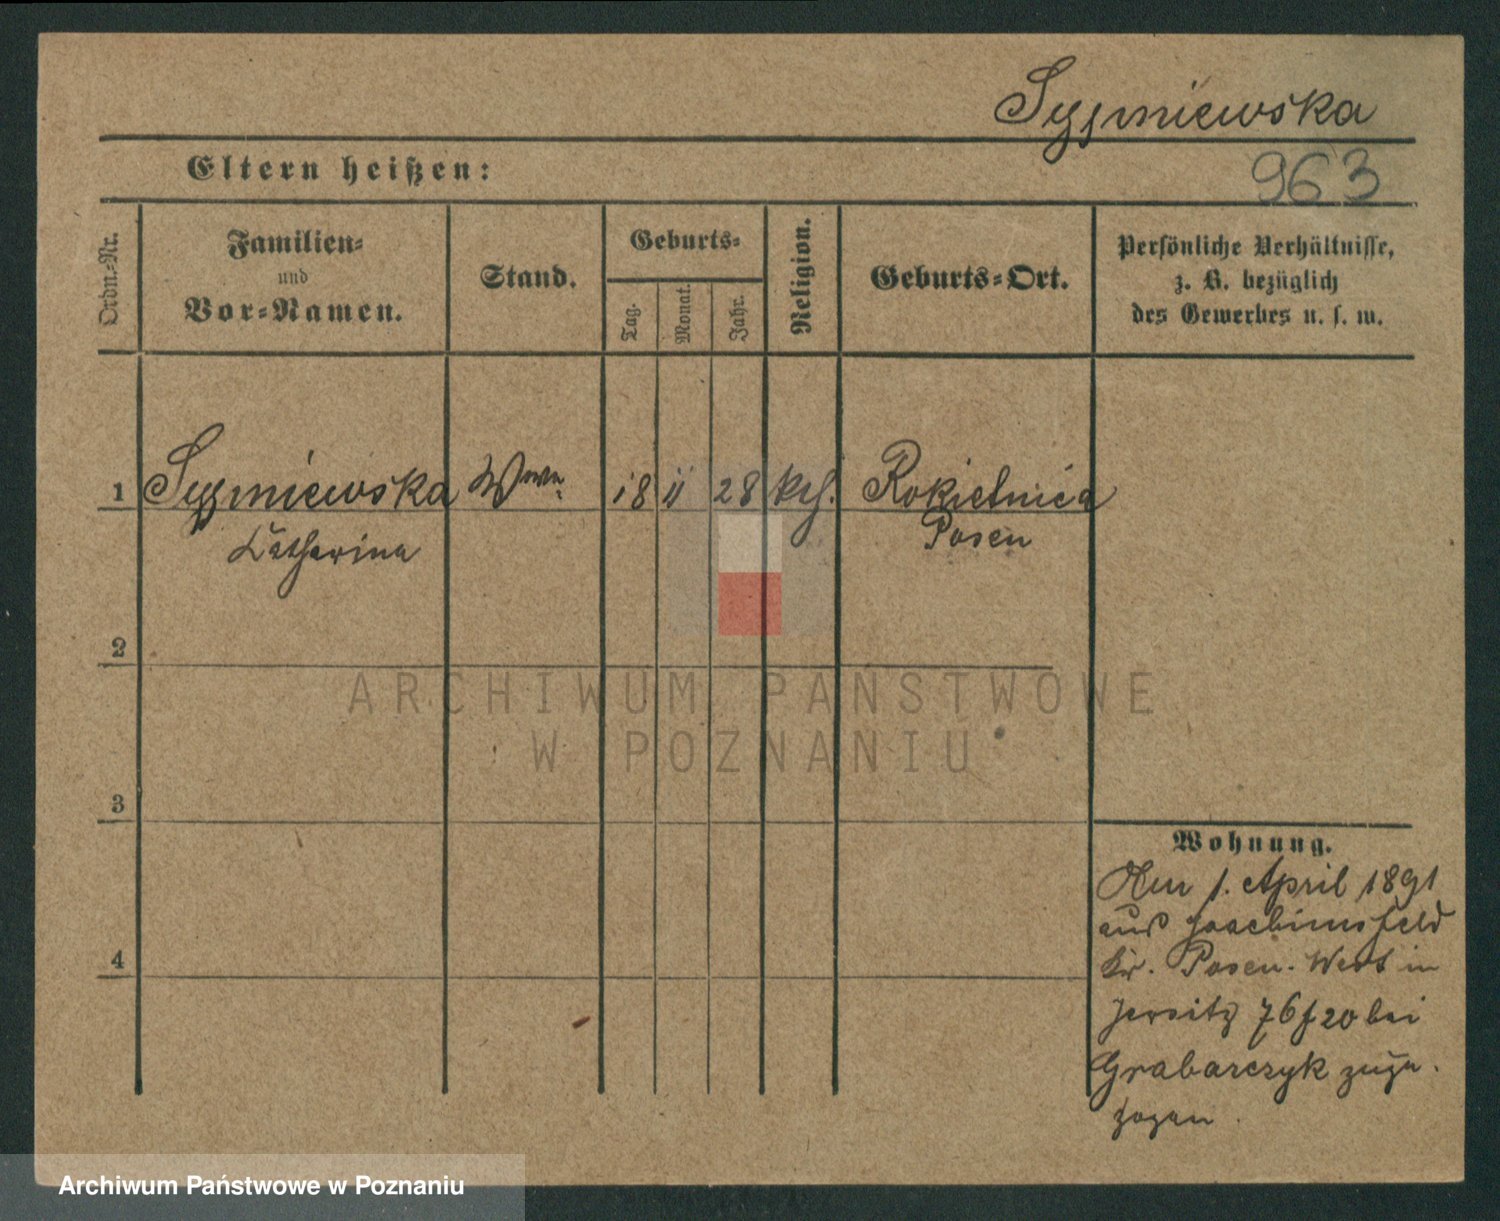 Szyszmiewska
963
Eltern heißen:
Ordn.-Nr.
Familien-
und
Vor-Namen.
Stand.
Geburts-
Tag.
Monat.
Jahr.
Religion.
Geburts-Ort.
Persönliche Verhältnisse,
z. B. bezüglich
des Gewerbes u. s. w.
1 Wwe. 18 11 28 kth. Rokietnica
Catharina Posen
2
3
4
Wohnung.
Am 1. April 1891
aus Joachimsfeld
Kr. Posen. West in
Jersitz 76 f 20 bei
Grabarczyk zuge-
zogen.
ARCHIWUM PAŃSTWOWE
W POZNANIU
Archiwum Państwowe w Poznaniu